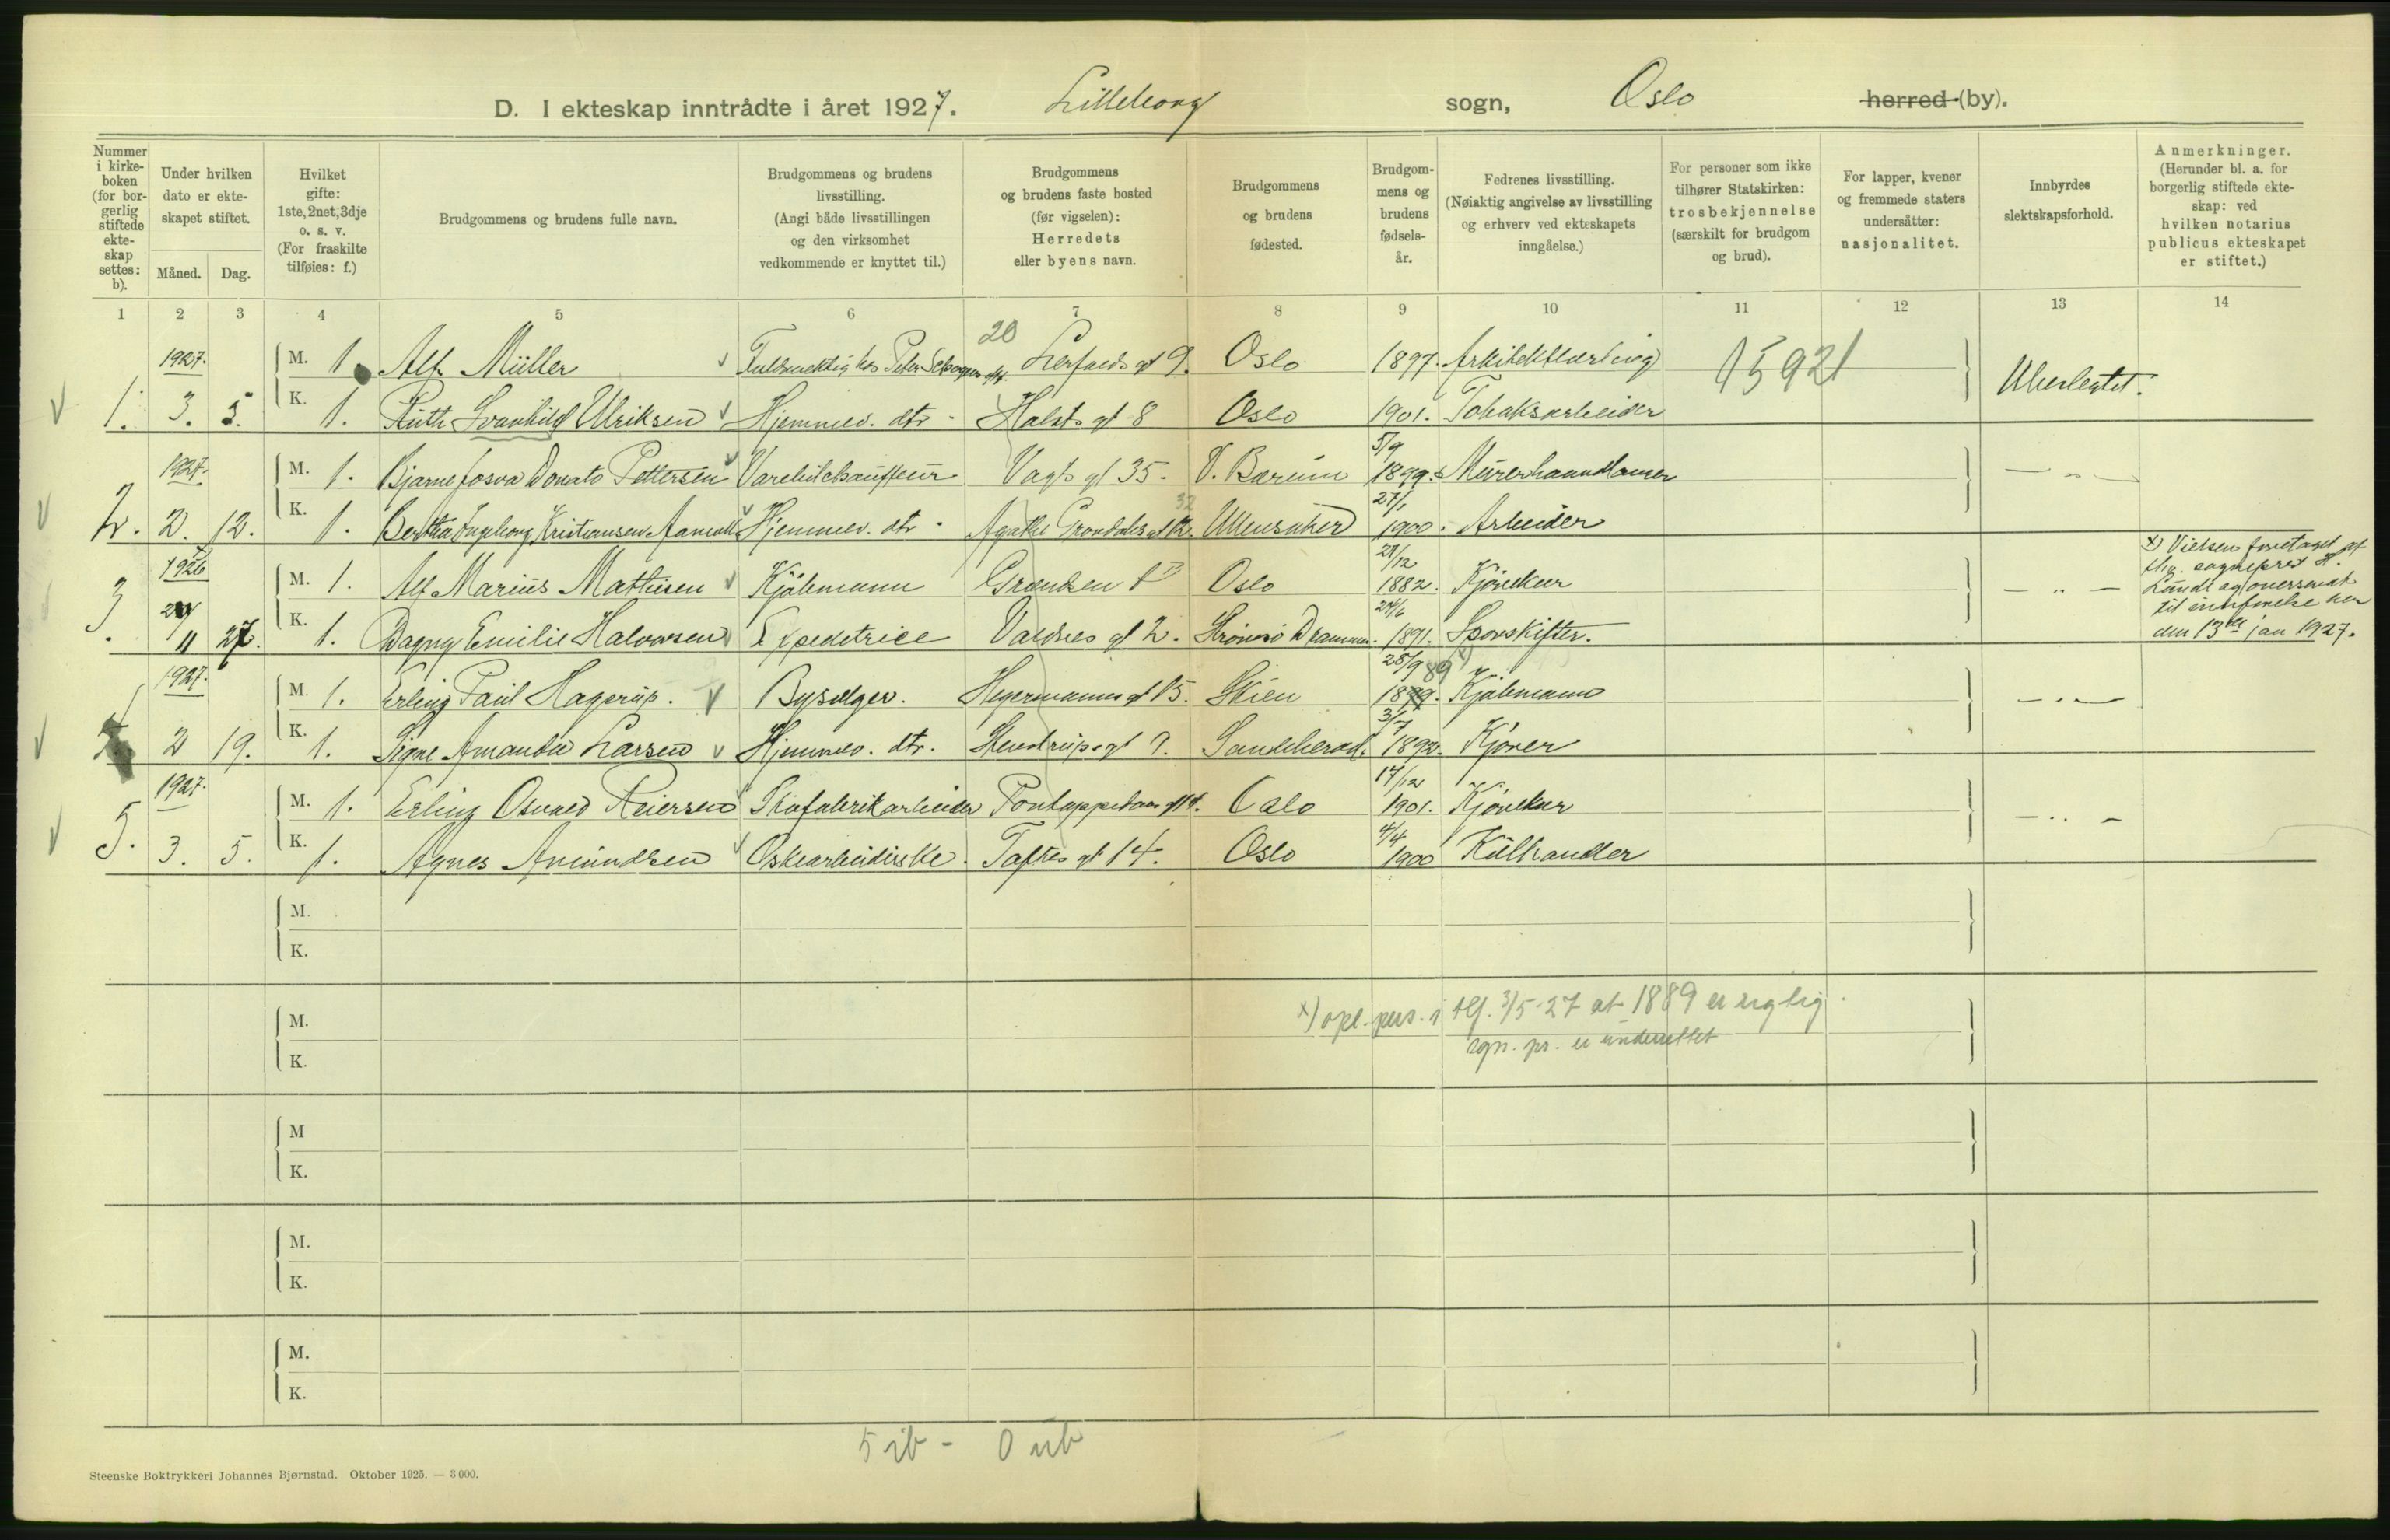 D. I ekteskap inntrådte i året 1927. Lilleborg sogn, Oslo herred (by).
Nummer i kirkeboken (for borgerlig stiftede ekteskap settes: b).
Under hvilken dato er ekteskapet stiftet.
Måned. Dag.
Hvilket gifte: 1ste, 2net, 3dje o. s. v. (For fraskilte tilføies: f.)
Brudgommens og brudens fulle navn.
Brudgommens og brudens livsstilling. (Angi både livsstillingen og den virksomhet vedkommende er knyttet til.)
Brudgommens og brudens faste bosted (før vigselen): Herredets eller byens navn.
Brudgommens og brudens fødested.
Brudgommens og brudens fødselsår.
Fedrenes livsstilling. (Nøiaktig angivelse av livsstilling og erhverv ved ekteskapets inngåelse.)
For personer som ikke tilhører Statskirken: trosbekjennelse (særskilt for brudgom og brud).
For lapper, kvener og fremmede staters undersåtter: nasjonalitet.
Innbyrdes slektskapsforhold.
Anmerkninger. (Herunder bl. a. for borgerlig stiftede ekteskap: ved hvilken notarius publicus ekteskapet er stiftet.)
1 2 3 4 5 6 7 8 9 10 11 12 13 14
1927. M. 1. Alf Müller 20 gt 9. Oslo 1897. 15921
1. 3. 5. K. 1. Ruth Svanhild Ulriksen Hjemmev. dtr. Holsts gt 8 Oslo 1901. Tobaksarbeider Ubeslegtet.
1927. M. 1. Bjarne Josva Donato Pettersen Varebilchauffeur Vogts gt 35. V. Bærum 5/9 1899. Murerhaandlanger
2. 2. 12. K. 1. Bertha Ingeborg Kristiansen Hjemmev. dtr. Agathe Grøndahls gt 32 Ullensaker 27/1 1900. Arbeider
1926 M. 1. Alf Marius Mathisen Kjøbmann Grensen Oslo 21/12 1882. Kjøreker
3. 11 27. K. 1. Dagny Emilie Halvorsen Expeditrice Valdres gt 2. Strømsø Drammen. 24/6 1891. Sporskifter.
x) Vielsen foretaget af
sogneprest
Lunde og oversendt
til innførelse her
den 13de jan 1927.
1927. M. 1. Erling Paul Hagerup. Byselger. Hegermanns gt 15. Skien 28/9 89 x) Kjøbmann
2 19. K. 1. Signe Amanda Larsen Hjemmev. dtr. Stenstrups gt 7. Sandeherad. 3/7 1892. Kjører
1927. M. 1. Erling Osvald Reiersen Skofabrikarbeider Pontoppidans gt Oslo 17/12 1901. Kjøreker
5. 3. 5. K. 1. Agnes Amundsen Eskearbeiderske. Toftes gt 14. Oslo 4/4 1900 Kulhandler
M.
K.
M.
x) opl. pers. i tlf. 3/5-27 at 1889 er rigtig.
K.
sgn. pr. er underrettet
M
K.
M.
K.
M.
K.
5 ib - 0 ub
Steenske Boktrykkeri Johannes Bjørnstad. Oktober 1925. — 3000.